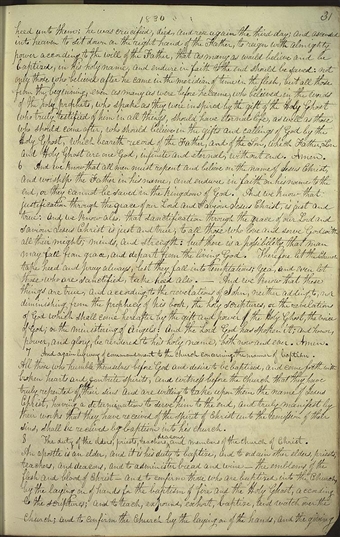 1830
31
heed unto them: he was crucified, died, and rose again the third day; and ascended
into heaven to sit down on the right hand of the Father, to reign with almighty
power according to the will of the Father, that as many as would believe and be
baptized, in his holy name, and endure in faith to the end should be saved: not
only those who believed after he came in the meridian of time in the flesh, but all those
from the beginning, even as many as were before he came, who believed in the words
of the holy prophets, who spake as they were inspired by the gift of the Holy Ghost
who truly testified of him in all things, should have eternal life, as well as those
who should come after, who should believe in the gifts and callings of God by the
Holy Ghost, which beareth record of the Father, and of the Son, which Father, Son,
and Holy Ghost are one God, infinite and eternal, without end. Amen.
6 And we know that all men must repent and believe on the name of Jesus Christ,
and worship the Father in his name, and endure in faith on his name to the
end, or they cannot be saved in the kingdom of God. And we know that
justification through the grace of our Lord and Saviour Jesus Christ, is just and
true: And we know also that sanctification through the grace of our Lord and
Saviour Jesus Christ is just and true, to all those who love and serve God with
all their mights, minds, and strength; but there is a possibility that man
may fall from grace, and depart from the living God. Therefore let the church
take heed and pray always, lest they fall into temptations; Yea, and even let
those who are sanctified, take heed also. And we know that these
things are true, and according to the revelations of John, neither adding to, nor
diminishing from the prophecy of his book, the holy scriptures, or the revelations
of God which shall come hereafter by the gift and power of the Holy Ghost, the voice
of God, or the ministering of Angels: And the Lord God has spoken it; and honor,
power, and glory, be rendered to his holy name, both now and ever. Amen.
7 And again by way of commandment to the Church concerning the manner of baptism.
All those who humble themselves before God and desire to be baptized, and come forth with
broken hearts and contrite spirits, and witness before the Church that they have
truly repented of their sins and are willing to take upon them the name of Jesus
Christ, having a determination to serve him to the end, and truly manifest by
their works that they have received of the spirit of Christ unto the remission of their
sins, shall be received by baptism into his church.
8 The duty of the elders, priests, teachers, deacons and members of the church of Christ.
An apostle is an elder, and it is his duty to baptize, and to ordain other elders, priests,
teachers, and deacons, and to administer bread and wine — the emblems of the
flesh and blood of Christ — and to confirm those who are baptized into the Church,
by the laying on of hands for the baptism of fire and the Holy Ghost, according
to the scriptures; and to teach, expound, exhort, baptize, and watch over the
Church; and to confirm the Church by the laying on of the hands, and the giving